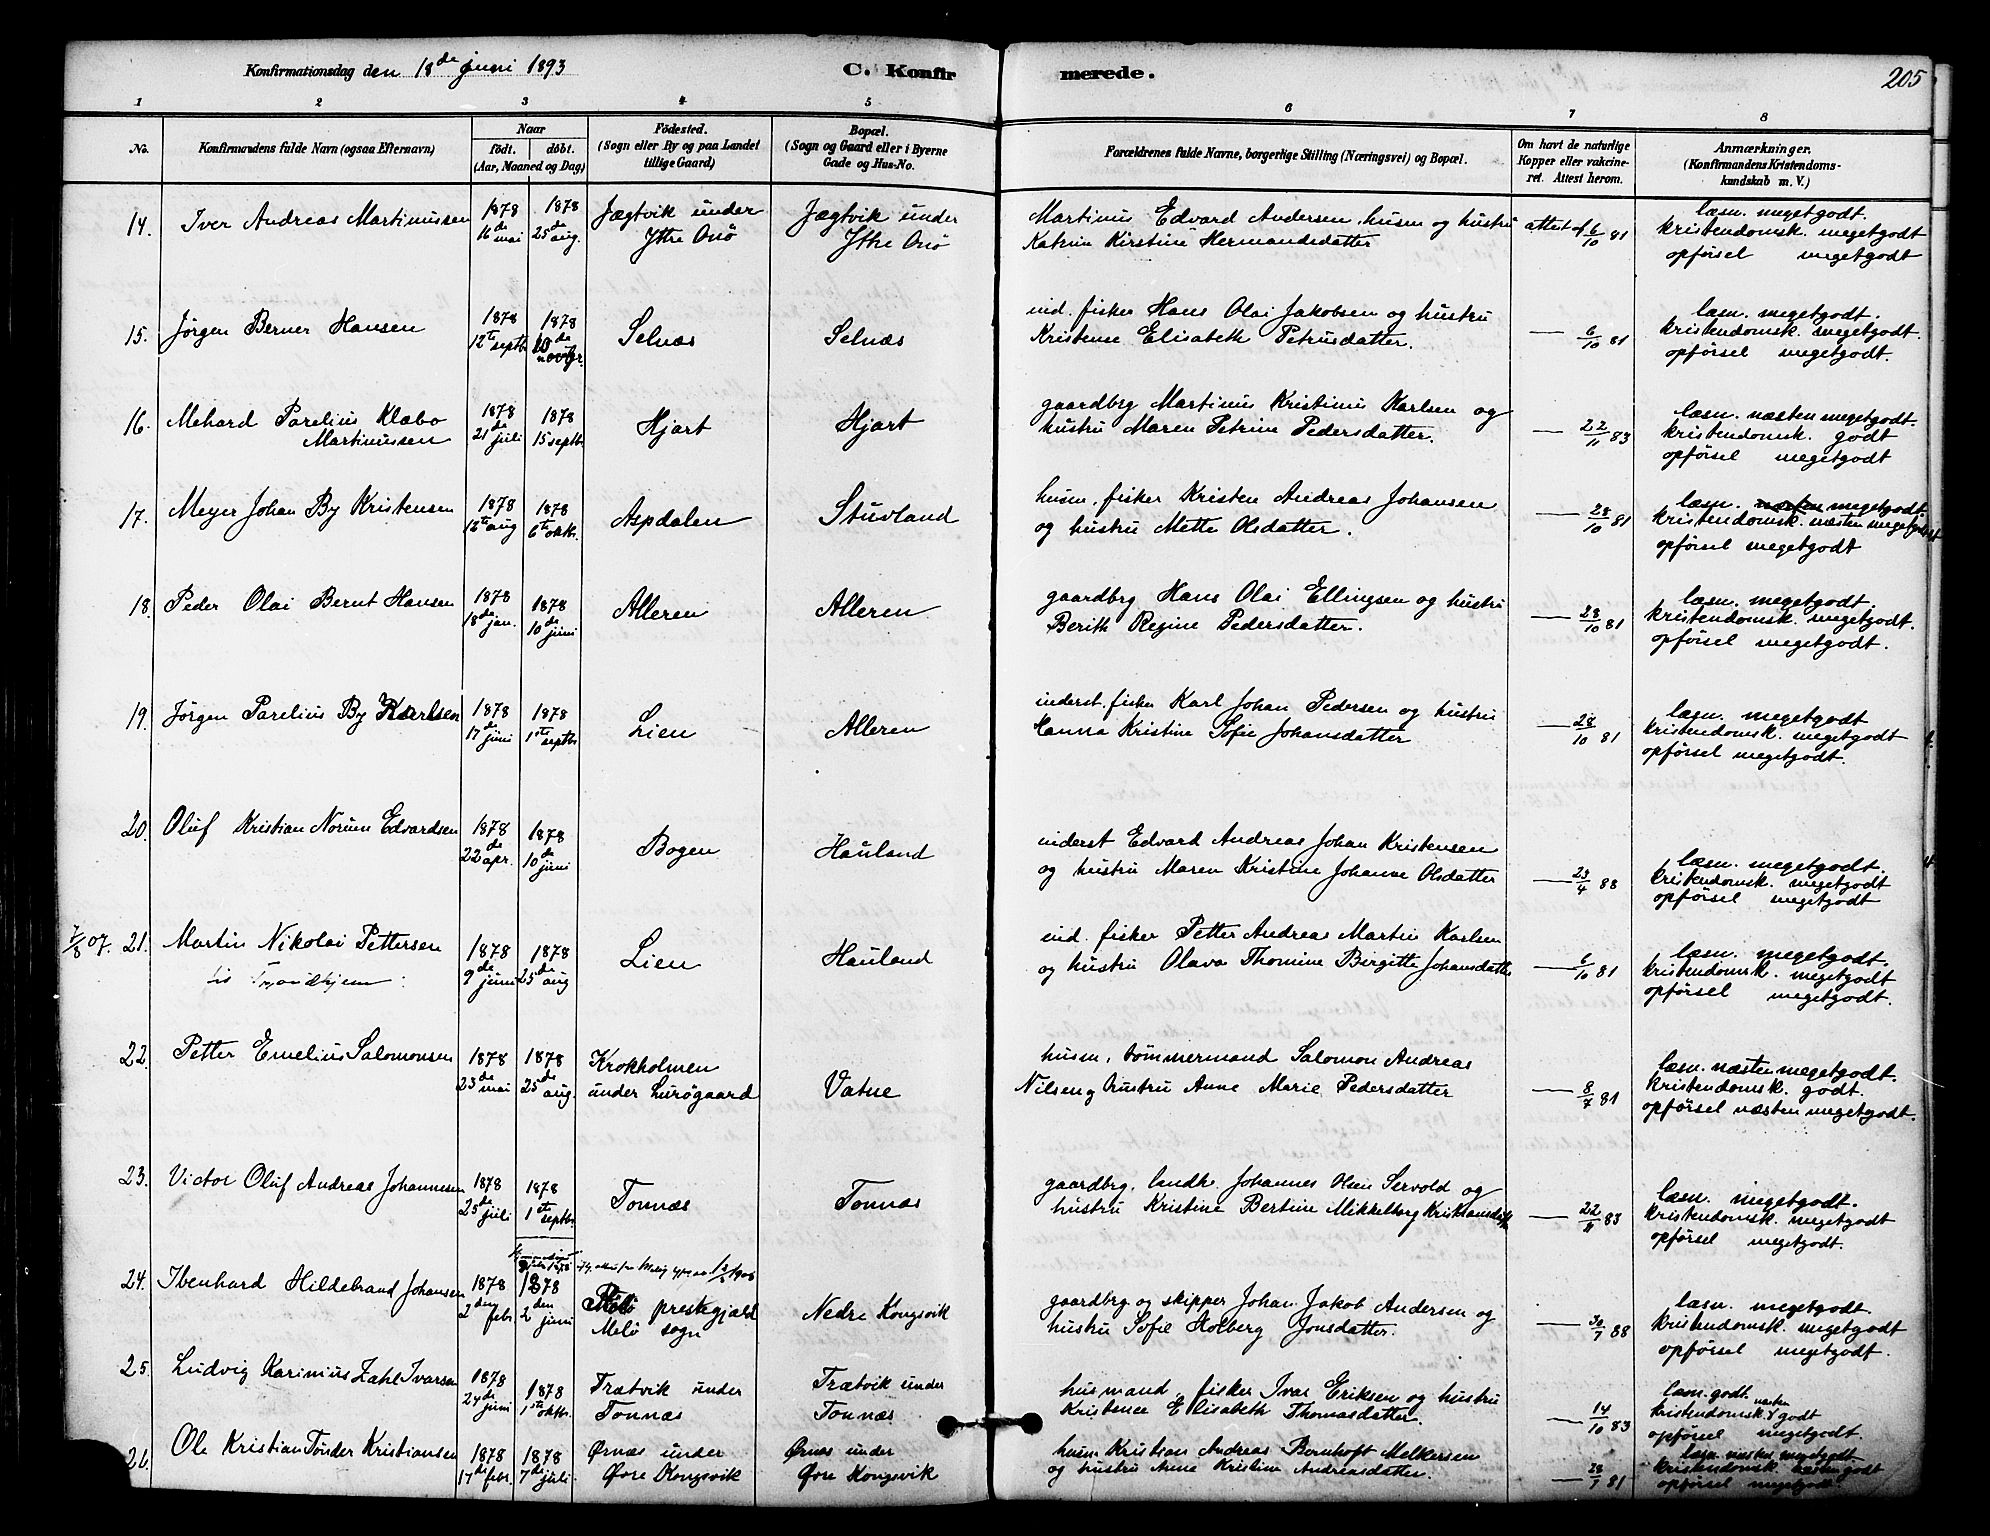 Konfirmationsdag den 18de juni 1893
C. Konfirmerede.
205
1 2 3 4 5 6 7 8
No.
Konfirmandens fulde Navn (ogsaa Efternavn)
Naar
födt. döbt.
(Aar, Maaned og Dag)
Födested.
(Sogn eller By og paa Landet
tillige Gaard)
Bopæl.
(Sogn og Gaard eller i Byerne
Gade og Hus-No.
Forældrenes fulde Navne, borgerlige Stilling (Næringsvei) og Bopæl.
Om havt de naturlige
Kopper eller vakcine-
ret. Attest herom.
Anmærkninger.
(Konfirmandens Kristendoms-
kundskab m. V.)
14. Iver Andreas Martinussen
1878
16de mai
1878
25de aug.
Jægtvik under
Ytre Onö
Jægtvik under
Ytre Onö
Martinus Edvard Andersen, husm og hustru
Katrin Kirstine Hermansdatter
attest af 6/10 81
læsn. megetgodt.
kristendomsk. megetgodt
opförsel megetgodt
15. Jörgen Berner Hansen
1878
12te septb.
1878
10de novbr.
Selnæs
Selnæs
ind. fisker Hans Olai Jakobsen og hustru
Kristense Elisabeth Petrusdatter.
— 6/10 81
læsn. megetgodt.
kristendomsk. megetgodt.
opförsel megetgodt.
16. Mehard Parelius Klæbo
Martinussen
1878
21de juli
1878
15 septb.
Hjart
Hjart
gaardbrg Martinus Kristinus Karlsen og
hustru Maren Petrine Pedersdatter.
— 22/11 83
læsn. næsten megetgodt.
kristendomsk. godt
opförsel megetgodt
17. Meyer Johan By Kristensen
1878
12te aug
1878
6te oktb.
Aspdalen
Stuvland
husm. fisker Kristen Andreas Johansen
og hustru Mette Olsdatter.
— 28/10 81
læsn. næsten megetgodt.
kristendomsk. næsten megetgodt
opförsel megetgodt
18. Peder Olai Bernt Hansen
1878
18de jan.
1878
10de juni
Alleren
Alleren
gaardbrg Hans Olai Ellingsen og hustru
Berith Regine Pedersdatter.
— 28/10 81
læsn. megetgodt.
kristendomsk. megetgodt.
opförsel megetgodt.
19. Jörgen Parelius By Karlsen
1878
17de juni
1878
1ste septb.
Lien
Alleren
inderst. fisker Karl Johan Pedersen og hustru
Hanna Kristine Sofie Johansdatter
— 28/10 81
læsn. megetgodt
kristendomsk. megetgodt
opförsel megetgodt.
20. Oluf Kristian Norum Edvardsen
1878
22de apr.
1878
10de juni
Bogen
Hauland
inderst Edvard Andreas Johan Kristensen
og hustru Maren Kristine Johanne Olsdatter
— 23/4 88
læsn. megetgodt.
kristendomsk. megetgodt
opförsel megetgodt
7/8 07. 21. Martin Nikolai Pettersen
til Trondhjem
1878
9de juni
1878
25de aug
Lien
Hauland
ind. fisker Petter Andreas Martin Karlsen
og hustru Olava Thomine Birgitte Johansdatter
— 6/10 81
læsn. megetgodt.
kristendomsk. megetgodt
opförsel megetgodt.
22. Petter Emelius Salomonsen
1878
23de mai
1878
25de aug.
Krokholmen
under Lurögaard
Vatne
husm. tömmermand Salomon Andreas
Nilsen og hustru Anne Marie Pedersdatter
— 8/7 81
læsn. næsten megetgodt.
kristendomsk. godt.
opförsel næsten megetgodt.
23. Victor Oluf Andreas Johannessen
1878
25de juli
1878
1ste septb.
Tonnæs
Tonnæs
gaardbrg. landh. Johannes Olsen Servold og
hustru Kristine Bertine Mikkelborg Kristiansdatt
— 22/11 83
læsn. megetgodt.
kristendomsk. megetgodt
opförsel megetgodt.
24. Ibenhard Hildebrand Johansen
1878
2den febr.
1878
2den juni
Melö prestegjæld
Melö sogn
Nedre Kongsvik
gaardbrg og skipper Johan Jakob Andersen og
hustru Sofie Holberg Jonsdatter.
— 30/7 88
læsn. megetgodt.
kristendomsk. megetgodt
opförsel megetgodt.
25. Ludvig Karinius Zahl Ivarsen
1878
24de juni
1878
1ste oktb.
Trætvik under
Tonnæs
Trætvik under
Tonnæs
husmand, fisker Ivar Eriksen og hustru
Kristence Elisabeth Thomasdatter.
— 14/10 83
læsn. godt.
kristendomsk. næsten godt
opförsel megetgodt.
26. Ole Kristian Tönder Kristiansen
1878
17de febr.
1878
7de juli
Ørnæs under
Øvre Kongsvik
Ørnæs under
Øvre Kongsvik
husm Kristian Andreas Bernhoft Melkersen
og hustru Anne Kristine Andreasdatter.
— 28/7 81
læsn. næsten megetgodt
kristendomsk. næsten godt
opförsel megetgodt.